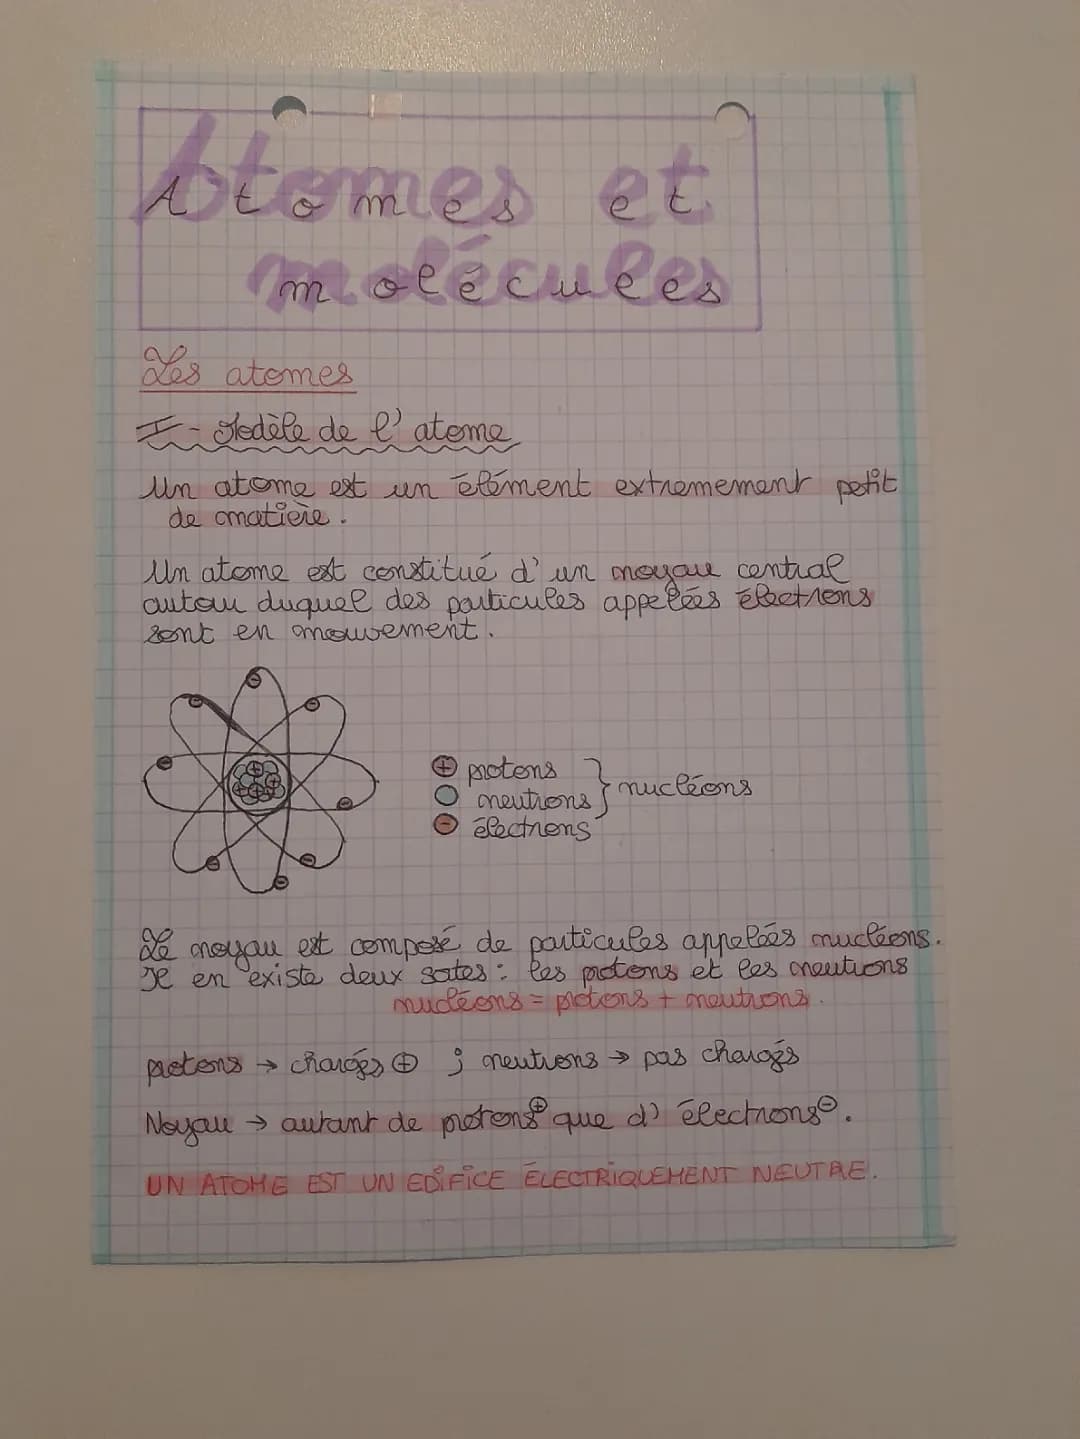 Atomes et
molécules
Les atomes
I - Modèle de l'atome
Un atome est un élément extremement petit
de matière.
Un atome est constitué d'un noyau central
autour duquel des particules appelées électrons
sont en mouvement.
⊕ protons
neutrons } nucléons
⊖ électrons
Le noyau est composé de particules appelées nucléons.
Il en existe deux sortes : les protons et les neutrons
nucléons = protons + neutrons.
protons → chargés ⊕ ; neutrons → pas chargés
Noyau → autant de protons⊕ que d'électrons⊖.
UN ATOME EST UN EDIFICE ÉLECTRIQUEMENT NEUTRE.